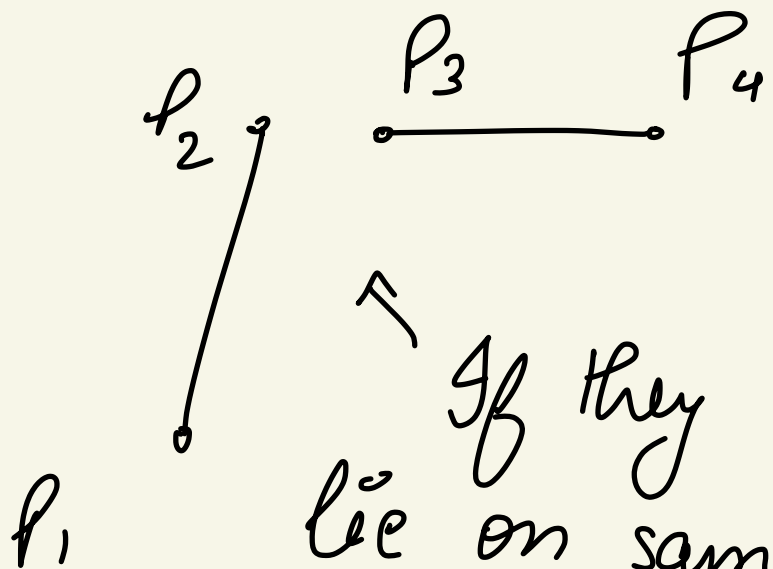 P3 P4
P2
If they
P1 lie on sam